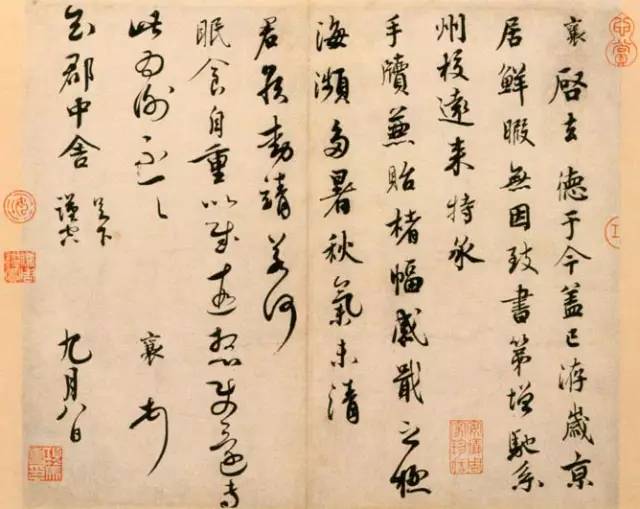 襄啓去德于今蓋已洊歲京
居鮮暇無因致書第增馳系
州校遠來特承
手牘兼貽楮幅感戢之極
海瀕多暑秋氣未清
君侯動靜若何
眠食自重以
此為謝不一一 襄頓首
知郡中舍足下謹空 九月八日